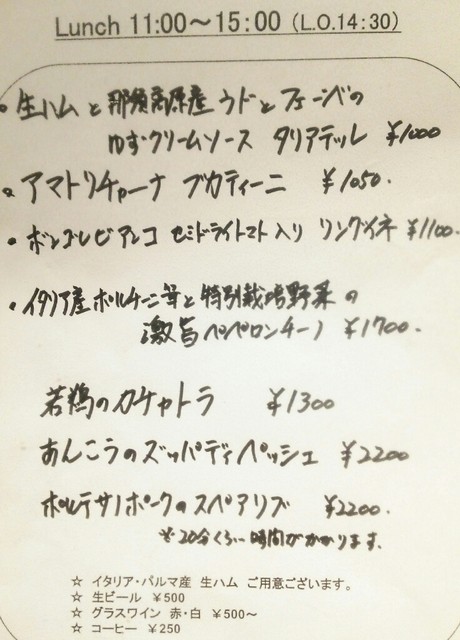 Lunch 11:00～15:00 (L.O.14:30)
・生ハムと那須高原産ウドとフェーベの
ゆずクリームソース タリアテッレ ¥1000
・アマトリチャーナ ブカティーニ ¥1050.
・ボンゴレビアンコ セミドライトマト入り リングイネ ¥1100.
・イタリア産ポルチーニ茸と特別栽培野菜の
激旨ペペロンチーノ ¥1700.
若鶏のカチャトラ ¥1300
あんこうのズッパディペッシェ ¥2200
ポルテサノポークのスペアリブ ¥2200.
※20分くらい時間がかかります.
☆ イタリア・パルマ産 生ハム ご用意ございます。
☆ 生ビール ￥500
☆ グラスワイン 赤・白 ￥500～
☆ コーヒー ￥250